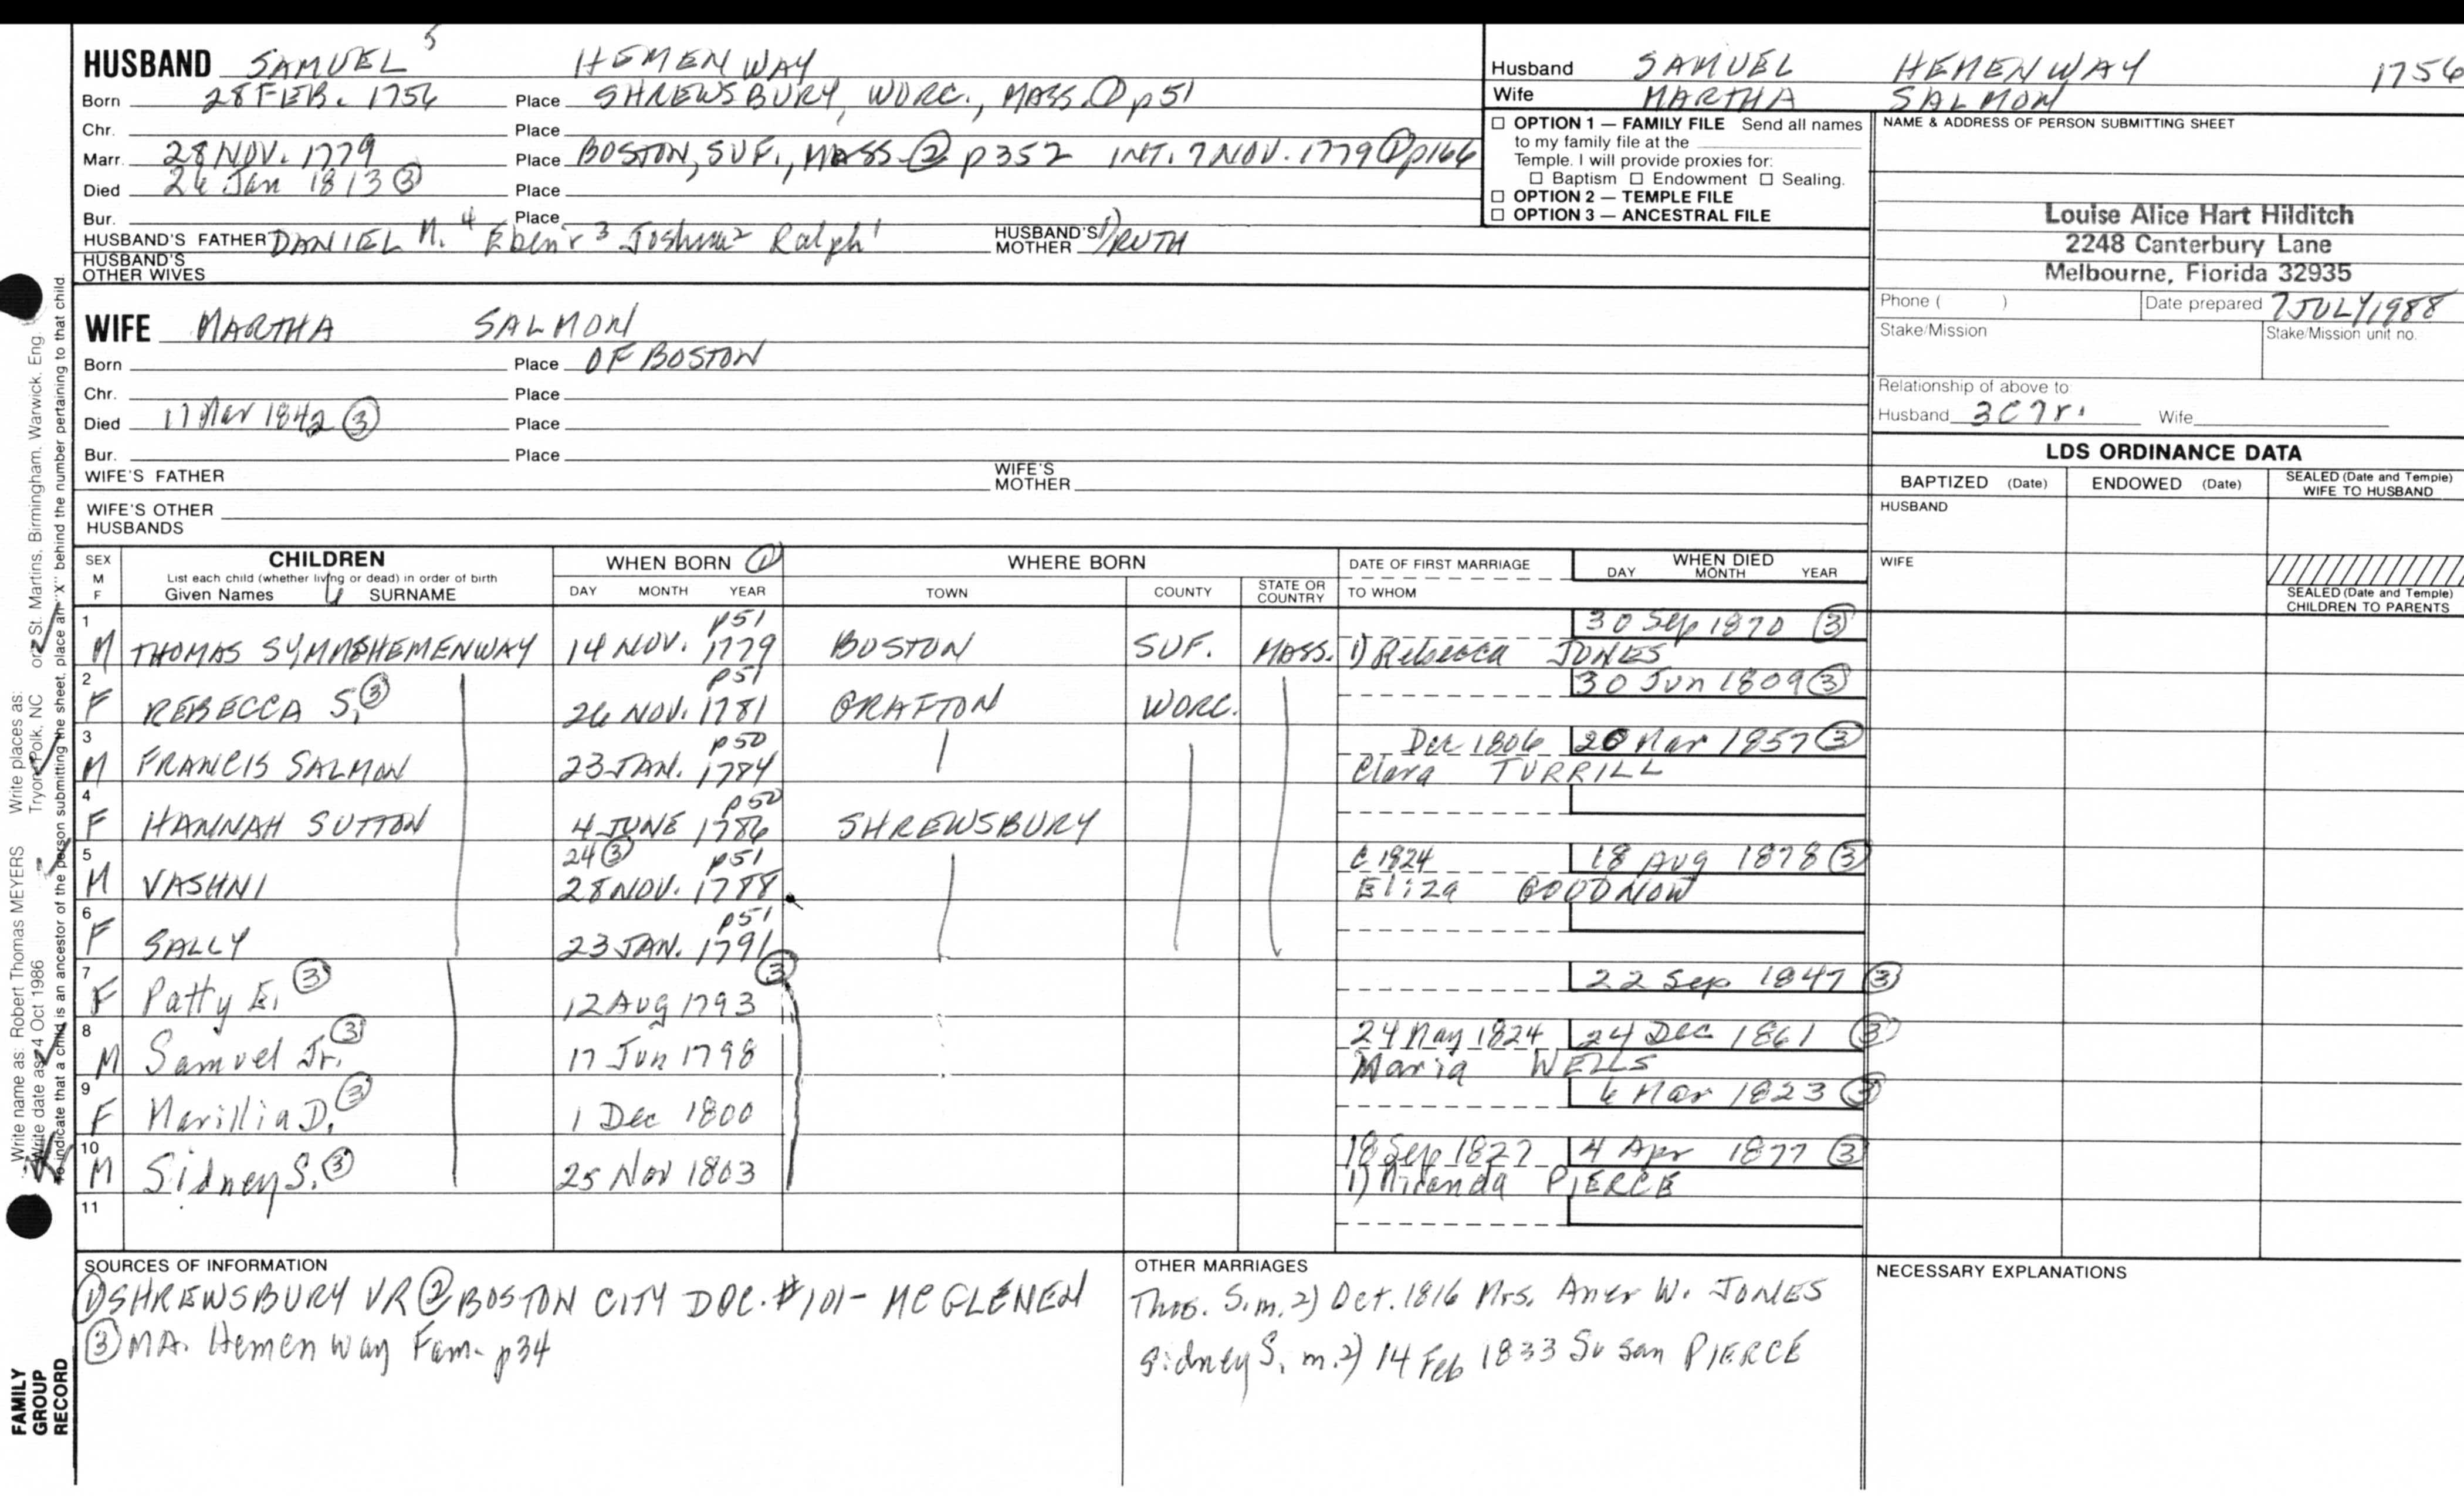 HUSBAND SAMUEL 5 HEMENWAY
Born 28 FEB. 1756 Place SHREWSBURY, WORC., MASS. ① p51
Chr. Place
Marr. 28 NOV. 1779 Place BOSTON, SUF., MASS. ② p352 INT. 7 NOV. 1779 ① p166
Died 26 Jan 1813 ③ Place
Bur. Place
HUSBAND'S FATHER DANIEL M. 4 Eben'r 3 Joshua 2 Ralph 1 HUSBAND'S MOTHER 1) RUTH
HUSBAND'S OTHER WIVES
WIFE MARTHA SALMON
Born Place OF BOSTON
Chr. Place
Died 17 Mar 1842 ③ Place
Bur. Place
WIFE'S FATHER WIFE'S MOTHER
WIFE'S OTHER HUSBANDS
Husband SAMUEL HEMENWAY 1756
Wife MARTHA SALMON
☐ OPTION 1 — FAMILY FILE Send all names
to my family file at the
Temple. I will provide proxies for:
☐ Baptism ☐ Endowment ☐ Sealing.
☐ OPTION 2 — TEMPLE FILE
☐ OPTION 3 — ANCESTRAL FILE
NAME & ADDRESS OF PERSON SUBMITTING SHEET
Louise Alice Hart Hilditch
2248 Canterbury Lane
Melbourne, Florida 32935
Phone ( ) Date prepared 7 JULY 1988
Stake/Mission Stake/Mission unit no.
Relationship of above to
Husband 3C7r. Wife
LDS ORDINANCE DATA
BAPTIZED (Date) ENDOWED (Date) SEALED (Date and Temple) WIFE TO HUSBAND
HUSBAND
WIFE
SEALED (Date and Temple) CHILDREN TO PARENTS
SEX M F CHILDREN WHEN BORN ① WHERE BORN DATE OF FIRST MARRIAGE WHEN DIED
List each child (whether living or dead) in order of birth DAY MONTH YEAR
Given Names SURNAME DAY MONTH YEAR TOWN COUNTY STATE OR COUNTRY TO WHOM
1 p51 30 Sep 1870 ③
M THOMAS SYMMS HEMENWAY 14 NOV. 1779 BOSTON SUF. MASS. 1) Rebecca JONES
2 p51 30 Jun 1809 ③
F REBECCA S. ③ 26 NOV. 1781 GRAFTON WORC.
3 p50 Dec 1806 20 Mar 1857 ③
M FRANCIS SALMON 23 JAN. 1784 Clara TURRILL
4 p50
F HANNAH SUTTON 4 JUNE 1786 SHREWSBURY
5 24 ③ p51 C 1824 18 AUG 1878 ③
M VASHNI 28 NOV. 1788 Eliza GOODNOW
6 p51
F SALLY 23 JAN. 1791
7 ③ 22 Sep 1847 ③
F Patty E. ③ 12 AUG 1793
8 24 May 1824 24 Dec 1861 ③
M Samuel Jr. ③ 17 Jun 1798 Maria WELLS
9 6 Mar 1823 ③
F Marillia D. ③ 1 Dec 1800
10 18 Sep 1827 4 Apr 1877 ③
M Sidney S. ③ 25 Nov 1803 1) Miranda PIERCE
11
SOURCES OF INFORMATION
① SHREWSBURY VR ② BOSTON CITY DOC. #101- MCGLENEN
③ MA. Hemenway Fam- p34
OTHER MARRIAGES
Thos. S. m. 2) Oct. 1816 Mrs. Aner W. JONES
Sidney S. m. 2) 14 Feb 1833 Susan PIERCE
NECESSARY EXPLANATIONS
FAMILY
GROUP
RECORD
Write name as: Robert Thomas MEYERS Write places as: Tryon, Polk, NC or St. Martins, Birmingham, Warwick, Eng.
Write date as: 4 Oct 1986
To indicate that a child is an ancestor of the person submitting the sheet, place an "X" behind the number pertaining to that child.